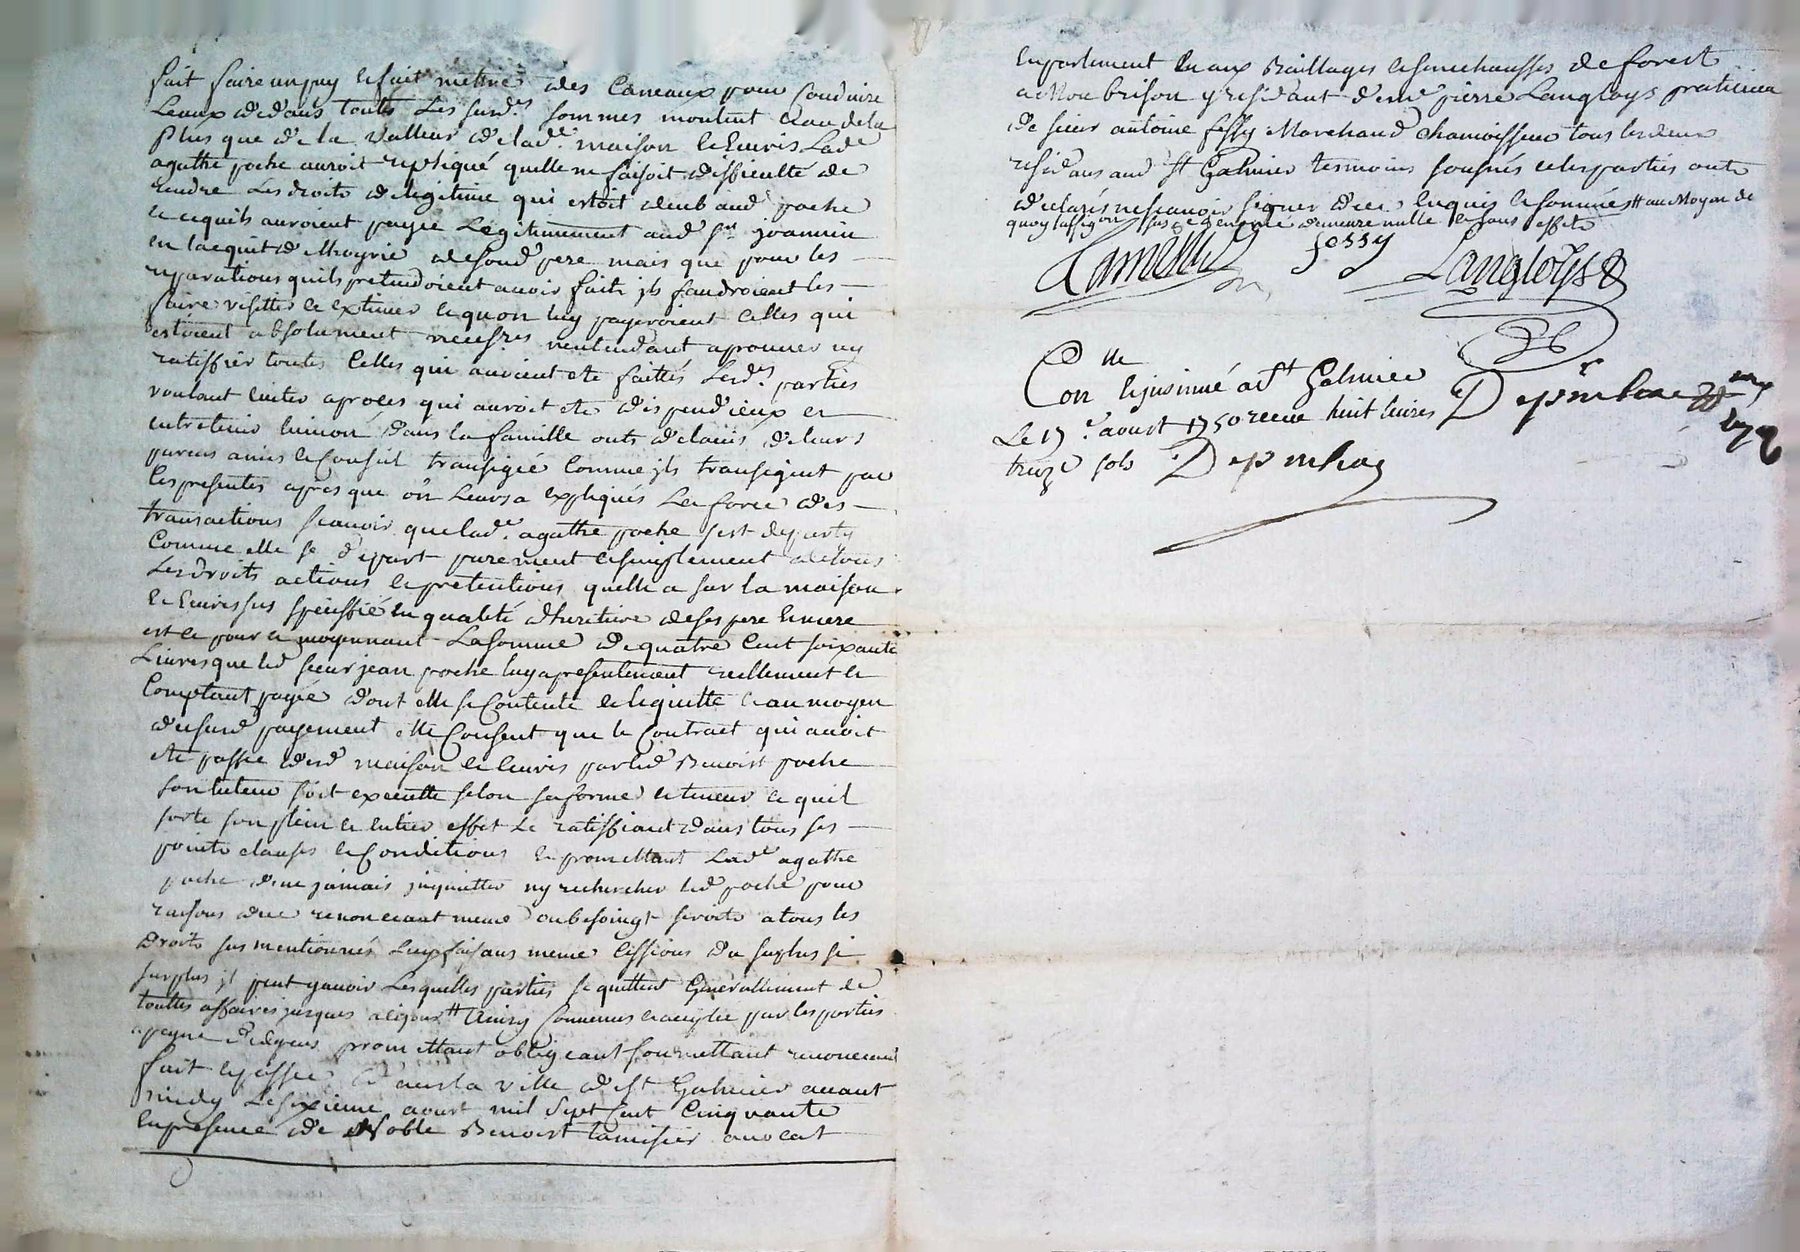 fait faire un puy et fait mettre des Caneaux pour Conduire
Leaux dedans touts Les surd.s sommes montent au dela
Plus que de la valleur de lad.e maison et Cuvis Lad.e
agathe poche auroit repliqué quelle ne faisoit difficulté de
rendre Les droits de legitime qui estoit deub aud poche
et cequils auroient payée Legitimement aud s.r joannin
en lacquit desond pere mais que pour les
reparations quils pretendoient avoir faits jls faudroient les
faire visitter et extimer et quon luy payeroient Celles qui
estoient absolument necess.res nentendant aprouver ny
ratiffier toutes Celles qui avoient eté faittes Lesd.s parties
voulant eviter aproces qui auroit ete dispendieux et
entretenir lunion dans la famille onts de lavis de leurs
parens amis et Conseil transigée Comme jls transigent par
Ces presentes apres que on Leurs a expliqués La force des
transactions scavoir que lad.e agathe poche sest departy
Comme elle se depart purement et simplement de tous
Les droits actions et pretentions quelle a sur la maison
et Cuvis sus speciffié en qualité dheritiere de ses pere et mere
est ce pour et moyennant La somme de quatre Cent soixante
Livres que led sieur jean poche luy a presentement reellement et
Comptant payée dont elle se Contente et lequitte et au moyen
du surd payement elle Consent que le Contract qui avoit
ete passée desd maison et Cuvis par led Benoist poche
son tuteur soit executté selon sa forme et teneur et quil
sorte son plein et entier effet Le ratiffiant dans tous ses
points clauses et Conditions En promettant Lad.e agathe
poche de ne jamais jnquietter ny rechercher led poche pour
raisons de ce renonceant meme ou besoingt seroits a tous les
Droits sus mentionnés Luy faisans meme Cessions du surplus si
surplus jl peut y avoir Lesquelles parties se quittent Generallement de
touttes affaires jusques a cejour # Ainsy Convenus et acceptée par les parties
a peyne d depens promettant obligeant soumettant renonceant
fait et passée dans la ville de St Galmier avant
midy Le sixieme aoust mil sept Cent Cinquante
En presence de Noble Benoist tamisier avocat
En parlement et aux Baillages et senechaussés de forest
a Montbrison y residant de m.e pierre Langloys praticien
de sieur antoine fessy Marchand Chamoisseur tous les deux
residans aud St Galmier temoins sousnés et les parties onts
declarés ne scavoir signer de ce Enquis et sommés # au Moyen de
quoy lassig.on sus enoncé demeure nulle et sans effets
tamisier fessy Langloys
Con.lle et jnsinué a St Galmier
Le 17.e aoust 1750 receu huit livres
treize sols